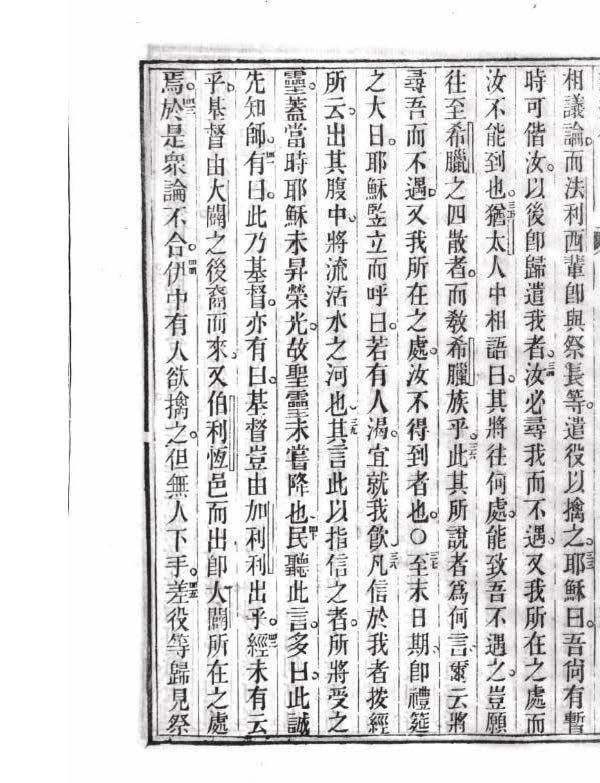 相議論。而法利西輩卽與祭長等。遣役以擒之。耶穌曰。吾尙有暫
時可偕汝。以後卽歸遣我者。三四汝必尋我而不遇。又我所在之處而
汝不能到也。三五猶太人中相語曰。其將往何處。能致吾不遇之。豈願
往至希臘之四散者。而敎希臘族乎。三六此其所說者爲何言。爾云將
尋吾而不遇。又我所在之處。汝不得到者也。○三七至末日期。卽禮筵
之大日。耶穌竪立而呼曰。若有人渴。宜就我飮。三八凡信於我者。按經
所云。出其腹中。將流活水之河也。三九其言此以指信之者。所將受之
聖靈。蓋當時耶穌未昇榮光。故聖靈未嘗降也。四十民聽此言。多曰。此誠
先知師。四一有曰。此乃基督。亦有曰。基督豈由加利利出乎。四二經未有云
乎。基督由大闢之後裔而來。又伯利恆邑而出。卽大闢所在之處
焉。四三於是衆論不合。四四伊中有人欲擒之。但無人下手。四五差役等歸見祭